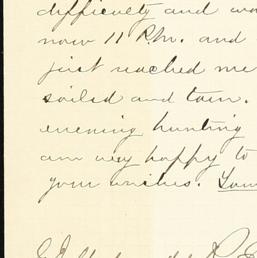 difficulty and
now 11 P.M. and
just reached me
soiled and torn.
evening hunting
am very happy to
your wishes.